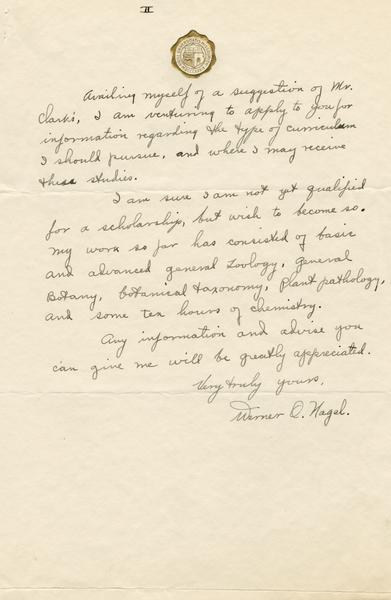 II
Availing myself of a suggestion of Mr.
Clark's, I am venturing to apply to you for
information regarding the type of curriculum
I should pursue, and where I may receive
these studies.
I am sure I am not yet qualified
for a scholarship, but wish to become so.
My work so far has consisted of basic
and advanced general Zoology, General
Botany, botanical taxonomy, Plant pathology,
and some ten hours of chemistry.
Any information and advise you
can give me will be greatly appreciated.
Very truly yours,
Werner O. Nagel.